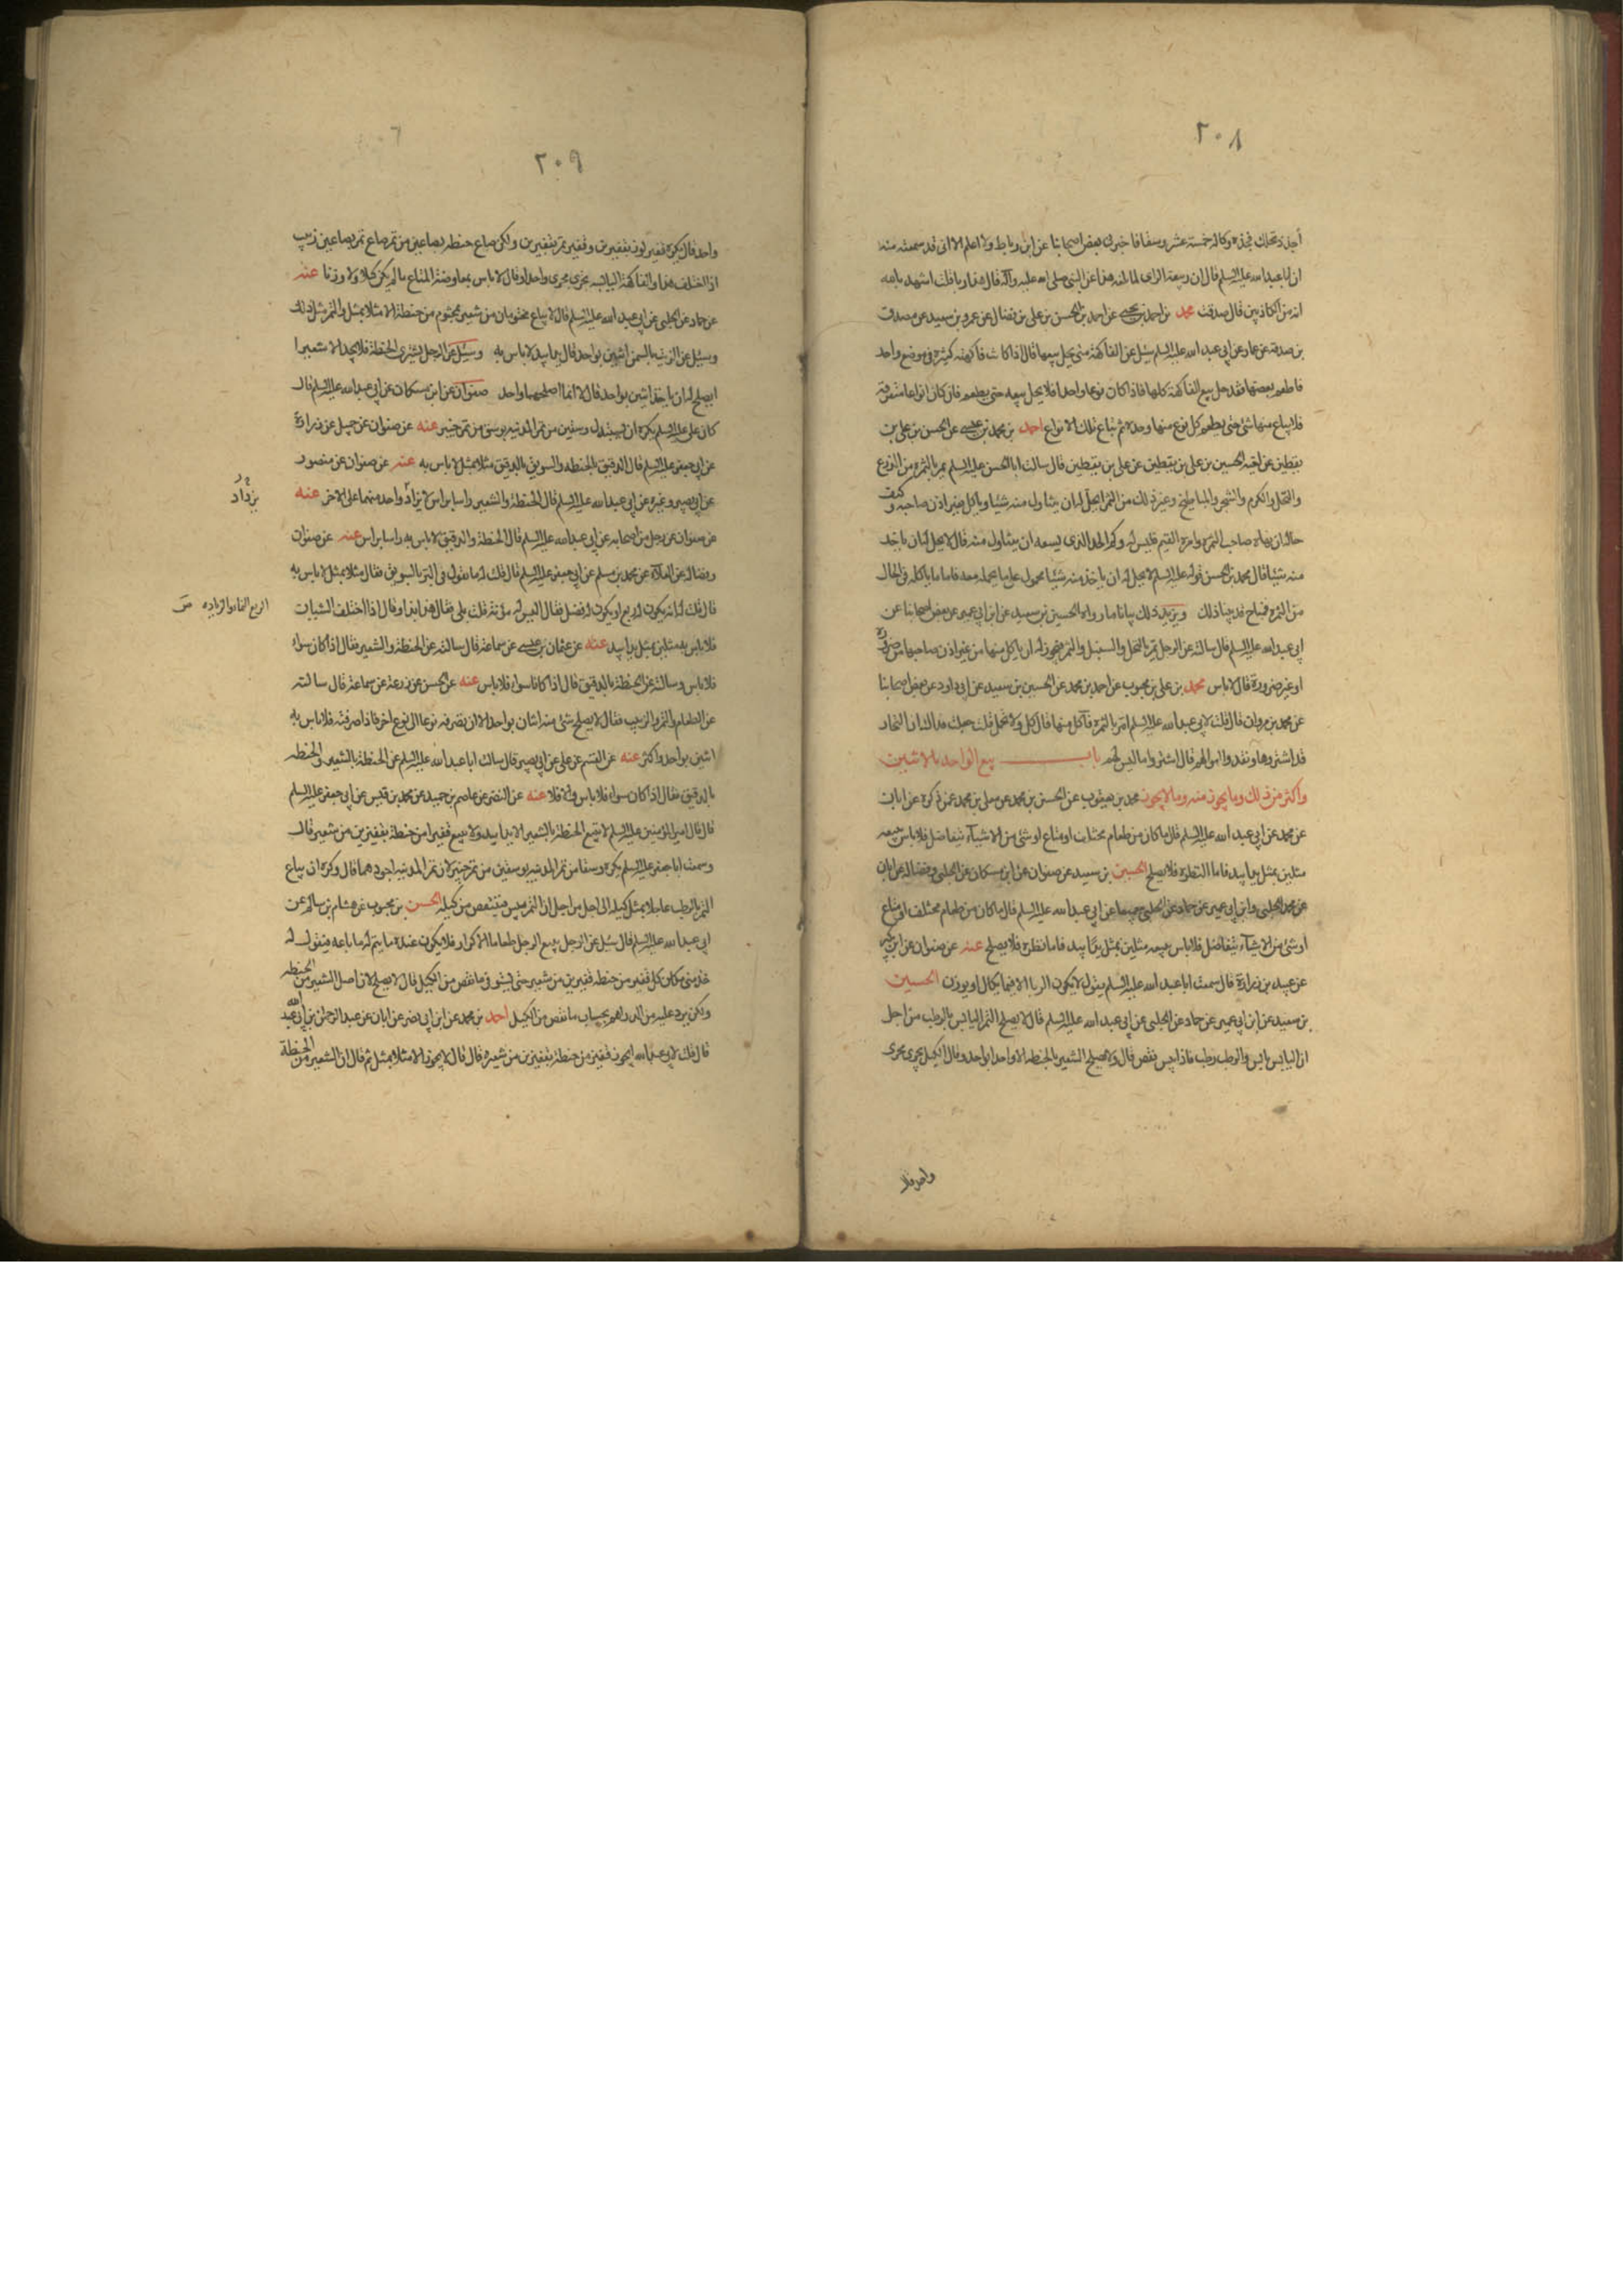 ٢٠٨
فخذه وكاله خمسة عشر وسقا فاخبرني بعض اصحابنا عن ابن رباط ولا اعلم الا اني قد سمعته منه
ان ابا عبد الله عليه السلم قال ان ربيعة الراى لما بلغه هذا عن النبي صلى الله عليه وآله قال هذا ربا قلت اشهد بالله
انه من الكاذبين قال صدقت محمد بن احمد بن يحيى عن احمد بن الحسن بن علي بن فضال عن عمرو بن سعيد عن مصدق
بن صدقه عن عمار عن ابي عبد الله عليه السلم سئل عن الفاكهة متى يحل بيعها قال اذا كانت فاكهة كثيرة في موضع واحد
فاطعم بعضها فقد حل بيع الفاكهة كلها فاذا كان نوعا واحدا فلا يحل بيعه حتى يطعم فان كان انواعا متفرقة
فلا يباع منها شئ حتى يطعم كل نوع منها وحده ثم تباع تلك الانواع احمد بن محمد بن عيسى عن الحسن بن علي بن
يقطين عن اخيه الحسين بن علي بن يقطين عن علي بن يقطين قال سالت ابا الحسن عليه السلم يمر بالثمره من الزرع
والنخل والكرم والشجر والمباطخ وغير ذلك من الثمر ايحل له ان يتناول منه شيئا وياكل بغير اذن صاحبه وكيف
حاله ان نهاه صاحب الثمره وامره القيم فليس له وكم الحد الذي يسعه ان يتناول منه قال لا يحل له ان ياخذ
منه شيئا قال محمد بن الحسن قوله عليه السلم لا يحل له ان ياخذ منه شيئا محمول على ما يحمله معه فاما ما ياكله في الحال
من الثمره فمباح قد بينا ذلك ويزيد ذلك بيانا ما رواه الحسين بن سعيد عن ابن ابي عمير عن بعض اصحابنا عن
ابي عبد الله عليه السلم قال سالته عن الرجل يمر بالنخل والسنبل والثمر فيجوز له ان ياكل منها من غير اذن صاحبها من ضرورة
او غير ضرورة قال لا باس محمد بن علي بن محبوب عن احمد بن محمد عن الحسين بن سعيد عن ابي داود عن بعض اصحابنا
عن محمد بن مروان قال قلت لابي عبد الله عليه السلم امر بالثمره فآكل منها قال كل ولا تحمل قلت جعلت فداك ان التجار
قد اشتروها ونقدوا اموالهم قال اشتروا ما ليس لهم باب بيع الواحد بالاثنين
واكثر من ذلك وما يجوز منه وما لا يجوز محمد بن يعقوب عن الحسين بن محمد عن معلى بن محمد عمن ذكره عن ابان
عن محمد عن ابي عبد الله عليه السلم قال ما كان من طعام مختلف او متاع او شئ من الاشياء يتفاضل فلا باس ببيعه
مثلين بمثل يدا بيد فاما النظرة فلا يصلح الحسين بن سعيد عن صفوان عن ابن مسكان عن الحلبي وفضاله عن ابان
عن محمد الحلبي وابن ابي عمير عن حماد عن الحلبي جميعا عن ابي عبد الله عليه السلم قال ما كان من طعام مختلف او متاع
او شئ من الاشياء يتفاضل فلا باس ببيعه مثلين بمثل يدا بيد فاما نظره فلا يصلح عنه عن صفوان عن ابن بكير
عن عبيد بن زرارة قال سمعت ابا عبد الله عليه السلم يقول لا يكون الربا الا فيما يكال او يوزن الحسين
بن سعيد عن ابن ابي عمير عن حماد عن الحلبي عن ابي عبد الله عليه السلم قال لا يصلح التمر اليابس بالرطب من اجل
ان اليابس يابس والرطب رطب فاذا يبس نقص قال ولا يصلح الشعير بالحنطه الا واحدا بواحد وقال الكيل يجري مجرى
واحد قال
٢٠٩
واحد قال يكره قفيز لوز بقفيزين وقفيز تمر بقفيزين ولكن صاع حنطه بصاعين من تمر صاع تمر بصاعين زبيب
اذا اختلف هذا والفاكهة اليابسه تجري مجرى واحدا وقال لا باس بمعاوضة المتاع ما لم يكن كيلا ولا وزنا عنه
عن حماد عن الحلبي عن ابي عبد الله عليه السلم قال لا يباع مختومان من شعير بمختوم من حنطة الا مثلا بمثل والتمر مثل ذلك
وسئل عن الزيت بالسمن اثنين بواحد قال يدا بيد لا باس به وسئل عن الرجل يشترى الحنطة فلا يجد الا شعيرا
ايصلح له ان ياخذ اثنين بواحد قال لا انما اصلهما واحد صفوان عن ابن مسكان عن ابي عبد الله عليه السلم قال
كان علي عليه السلم يكره ان يستبدل وسقين من تمر المدينه بوسق من تمر خيبر عنه عن صفوان عن جميل عن زرارة
عن ابي جعفر عليه السلم قال الدقيق بالحنطه والسويق بالدقيق مثلا بمثل لا باس به عنه عن صفوان عن منصور
عن ابي بصير وغيره عن ابي عبد الله عليه السلم قال الحنطة والشعير راسا براس لا يزاد واحد منهما على الاخر عنه
يزداد
عن صفوان عن رجل من اصحابه عن ابي عبد الله عليه السلم قال الحنطة والدقيق لا باس به راسا براس عنه عن صفوان
وفضاله عن العلاء عن محمد بن مسلم عن ابي جعفر عليه السلم قال قلت له ما تقول في البر بالسويق فقال مثلا بمثل لا باس به
قال قلت له انه يكون له ريع او يكون له فضل فقال اليس له مؤنة قلت بلى فقال هذا بذا وقال اذا اختلف الشيئان
الريع النماء والزياده
فلا باس به مثلين بمثل يدا بيد عنه عن عثمان بن عيسى عن سماعة قال سالته عن الحنطة والشعير فقال اذا كان سواء
فلا باس وسالته عن الحنطة بالدقيق قال اذا كانا سواء فلا باس عنه عن الحسن عن زرعة عن سماعة قال سالته
عن الطعام والتمر والزبيب فقال لا يصلح شئ منه اثنان بواحد الا ان يصرفه نوعا الى نوع اخر فاذا صرفته فلا باس به
اثنين بواحد واكثر عنه عن القسم عن علي عن ابي بصير قال سالت ابا عبد الله عليه السلم عن الحنطة بالشعير والحنطه
بالدقيق فقال اذا كان سواء فلا باس والا فلا عنه عن النضر عن عاصم بن حميد عن محمد بن قيس عن ابي جعفر عليه السلم
قال قال امير المؤمنين عليه السلم لا تبع الحنطة بالشعير الا يدا بيد ولا تبيع قفيزا من حنطة بقفيزين من شعير قال
وسمعت ابا جعفر عليه السلم يكره وسقا من تمر المدينه بوسقين من تمر خيبر لان تمر المدينه اجودهما قال وكره ان يباع
التمر بالرطب عاجلا بمثل كيله الى اجل من اجل ان التمر ييبس فينقص من كيله الحسن بن محبوب عن هشام بن سالم عن
ابي عبد الله عليه السلم قال سئل عن الرجل يبيع الرجل طعاما الاكرار فلا يكون عنده ما يتم له ما باعه فيقول له
خذ مني مكان كل قفيز من حنطه قفيزين من شعير حتى تستوفي ما نقص من الكيل قال لا يصلح لان اصل الشعير من الحنطه
ولكن يرد عليه من الدراهم بحساب ما نقص من الكيل احمد بن محمد عن ابن ابي نصر عن ابان عن عبد الرحمن بن ابي عبد الله
قال قلت لابي عبد الله ايجوز قفيز من حنطة بقفيزين من شعيره قال قال لا يجوز الا مثلا بمثل ثم قال ان الشعير من الحنطة